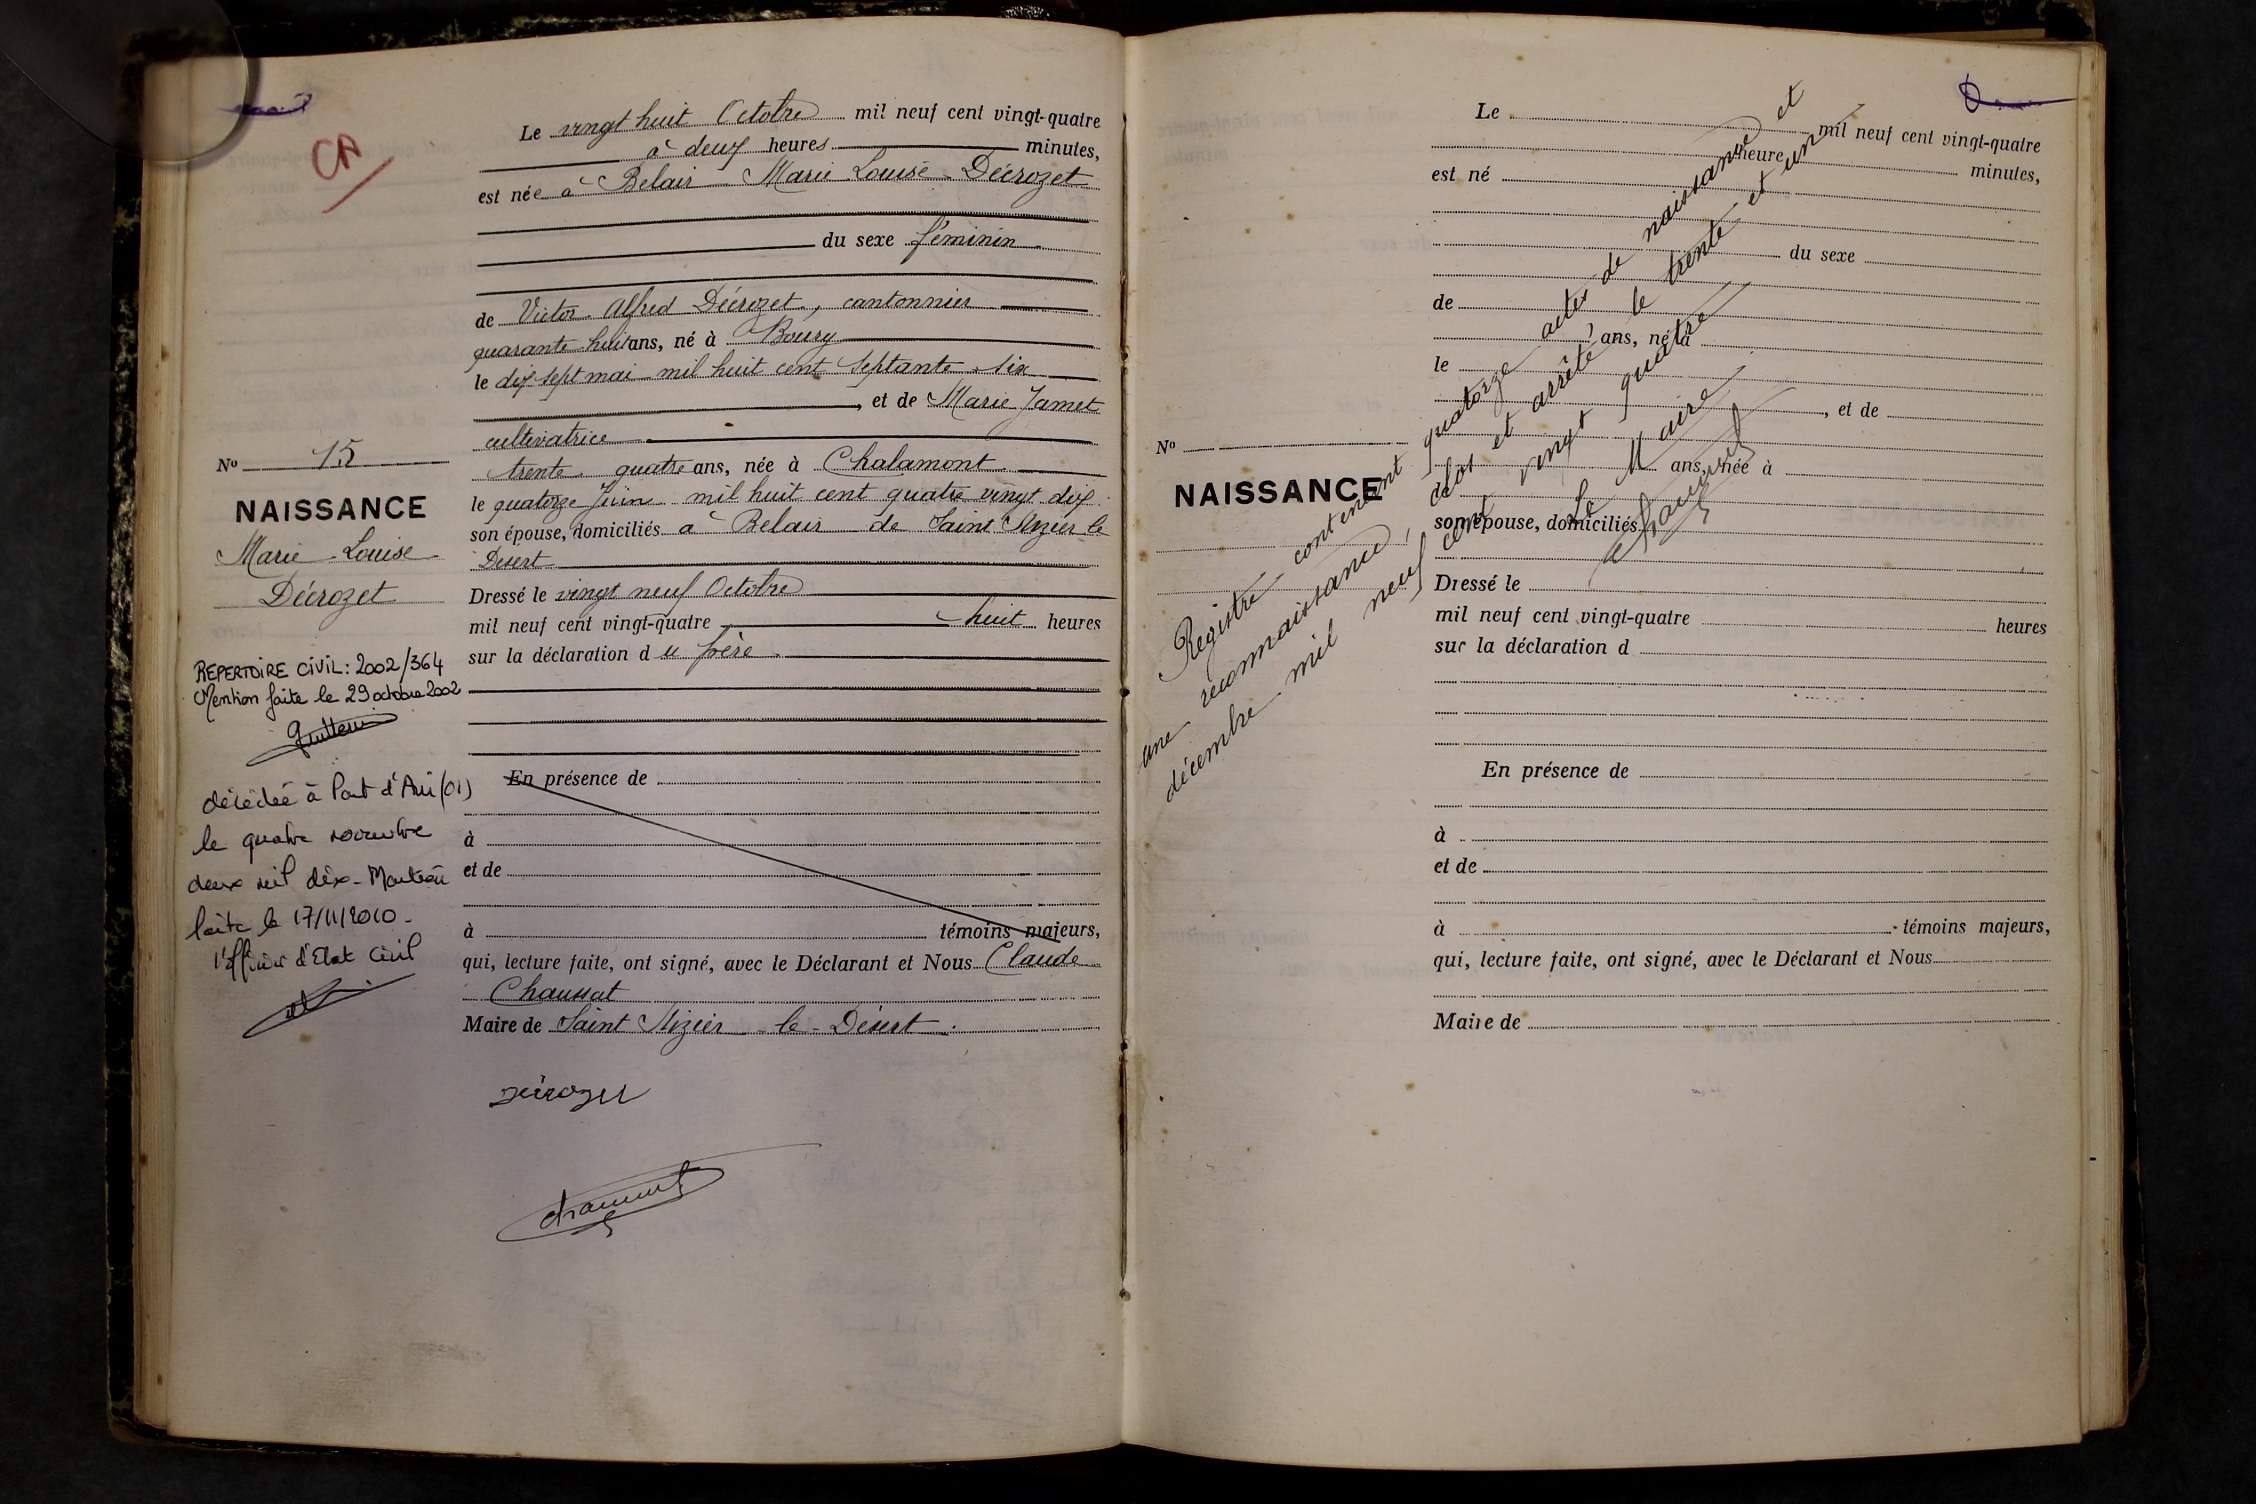 CA
Le vingt huit Octobre mil neuf cent vingt-quatre
à deux heures minutes,
est née à Belair Marie Louise Décrozet
du sexe féminin
de Victor Alfred Décrozet, cantonnier
quarante huit ans, né à Bourg
le dix sept mai mil huit cent septante six
, et de Marie Jamet
cultivatrice
trente quatre ans, née à Chalamont
le quatorze Juin mil huit cent quatre vingt dix
son épouse, domiciliés a Belair de Saint Nizier le
Desert
Dressé le vingt neuf Octobre
mil neuf cent vingt-quatre huit heures
sur la déclaration du frère.
En présence de
à
et de
à témoins majeurs,
qui, lecture faite, ont signé, avec le Déclarant et Nous Claude
Chaussat
Maire de Saint Nizier le Désert.
Décrozet
Chaussat
No 15
NAISSANCE
Marie Louise
Décrozet
REPERTOIRE CIVIL: 2002/364
Mention faite le 29 octobre 2002
décédée à Pont d'Ain (01)
le quatre novembre
deux mil dix - Mention
faite le 17/11/2010 -
l'Officier d'Etat Civil
Le mil neuf cent vingt-quatre
heure minutes,
est né
du sexe
de
ans, né à
le
, et de
ans, née à
le
son épouse, domiciliés
Dressé le
mil neuf cent vingt-quatre heures
sur la déclaration d
En présence de
à
et de
à témoins majeurs,
qui, lecture faite, ont signé, avec le Déclarant et Nous
Maire de
No
NAISSANCE
Registre contenant quatorze actes de naissance et
une reconnaissance, clos et arrêté le trente et un
décembre mil neuf cent vingt quatre
Le Maire
Chaussat